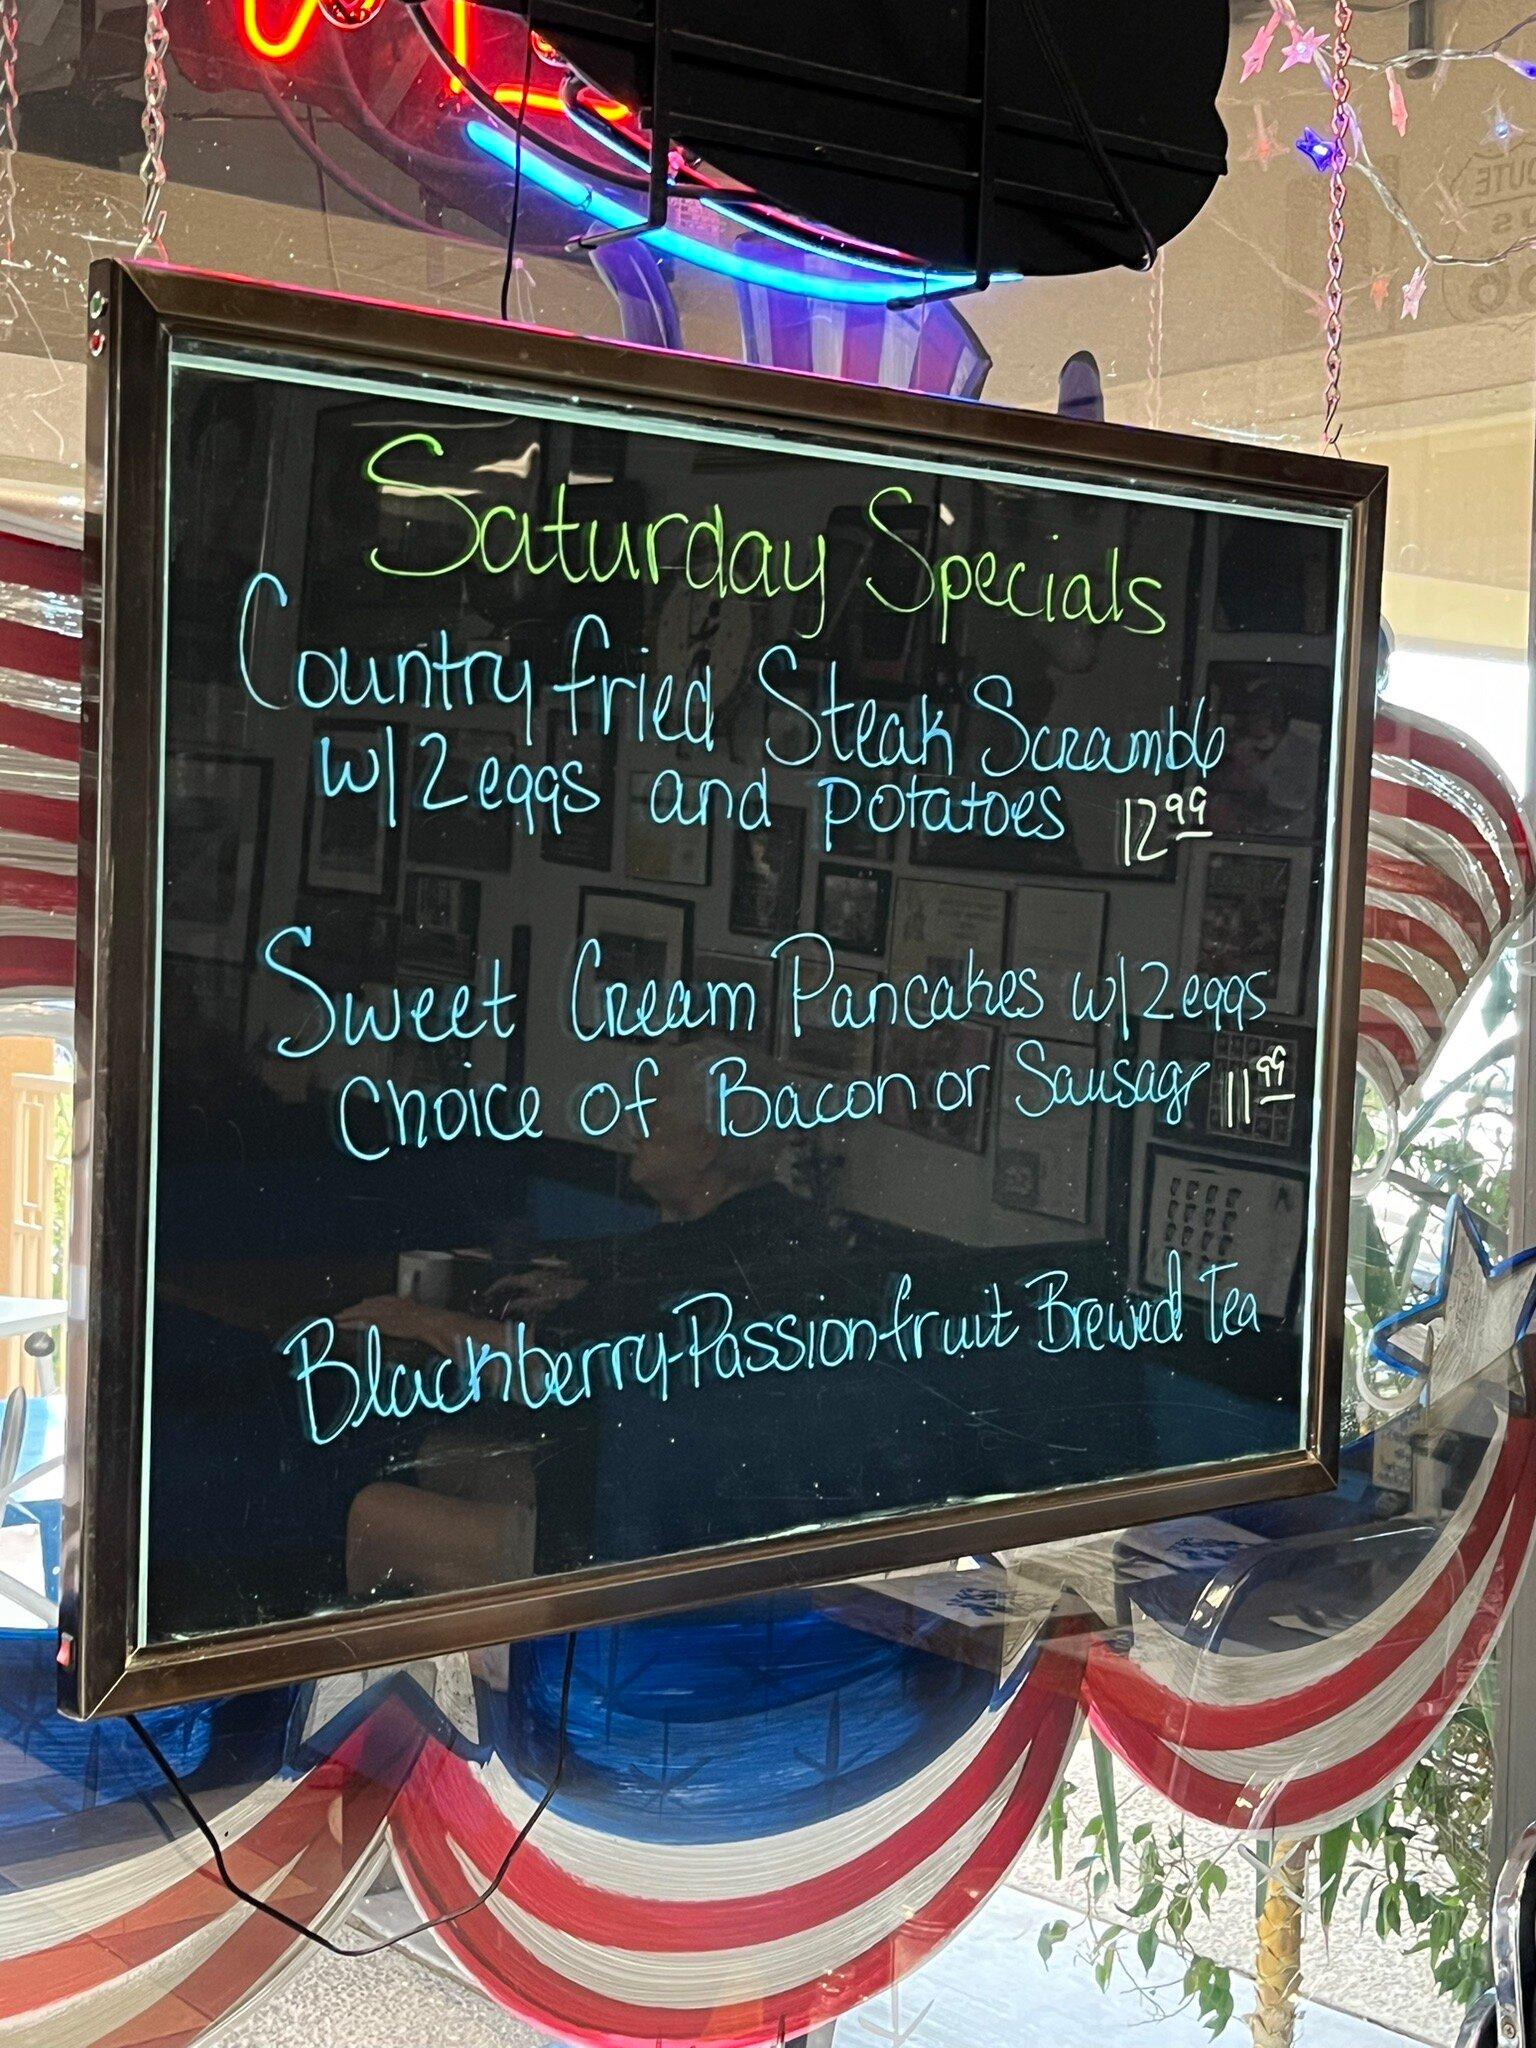 Saturday Specials
Country fried Steak Scramble
w/ 2 eggs and potatoes 12.99
Sweet Cream Pancakes w/ 2 eggs
Choice of Bacon or Sausage 11.99
Blackberry-Passionfruit Brewed Tea